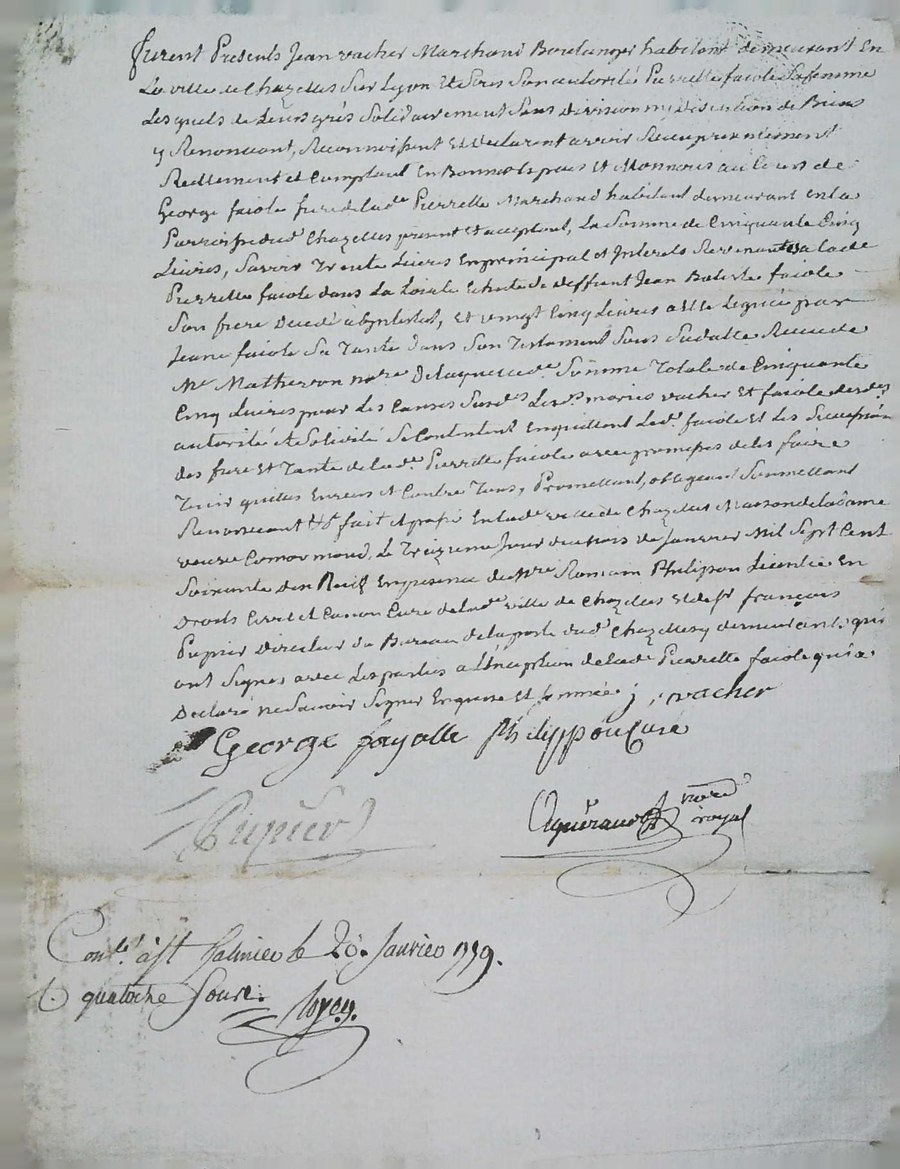 furent Presents Jean vacher Marchand Boulanger habitant demeurant En
La ville de Chazelles Sur Lyon Et Sous Son autorité Pierrette faiole Sa femme
Lesquels de Leurs grés Solidairement Sans Division ny Discution de Biens
y Renoncant, Reconnoissent et declarent avoir Receu presentement
Reellement et Comptant En Bonnes Especes et Monnoies au Cours de
George faiole frere de lad.e Pierrette Marchand habitant demeurant en la
Parroisse dud. Chazelles present et acceptant, La Somme de Cinquante Cinq
Livres, Savoir Trente Livres En principal et Interets Revenantes a lade
Pierrette faiole dans La Echute de deffunt Jean Batiste faiole
Son frere Decedé abintestat, Et vingt Cinq Livres a Elle Leguée par
Jeane faiole Sa Tante dans Son Testament Sous Sa datte Receu de
Me Matheron no.re Delaquelle de Somme Totale de Cinquante
Cinq Livres pour Les Causes Susd.es Les d. mariés vacher Et faiole
autorité et Solidité Se Contentent En quittent Led. faiole Et Les Succession
des frere Et Tante de lad.e Pierrette faiole avec promesses de les faire
Tenir quittes Envers et Contre Tous, Promettant, obligeant Soumettant
Renonceant &.a fait et passé En lad.e ville de Chazelles Maison de la dame
veuve Comarmond Le Treizieme Jour du mois de Janvier Mil Sept Cent
Soixante Dix Neuf En presence de M.re Romain Philipon Licentié En
Droits Civil et Canon Curé de lad.e ville de Chazelles Et de Sr François
Pupier Directeur du Bureau de la poste dud. Chazelles y demeurants, qui
ont Signés avec Les parties a L'exception de lade Pierrette faiole qui a
Declaré ne Savoir Signer Enquise Et Sommée J. vacher
George fayolle Philippon Curé
Pupier
Agniraud no.re
royal
Con.lé à St Galmier le 20. Janvier 1779.
R. quatorze Sous. Royer.